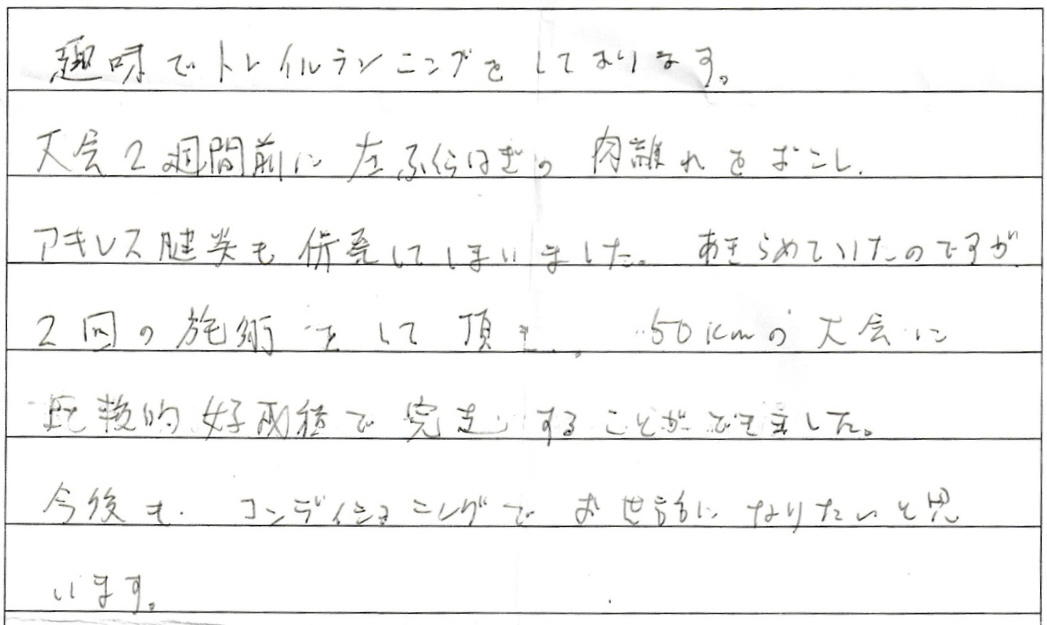 趣味でトレイルランニングをしております。
大会2週間前に左ふくらはぎの肉離れをおこし、
アキレス腱炎も併発してしまいました。あきらめていたのですが
2回の施術をして頂き、50kmの大会に
比較的好成績で完走することができました。
今後も、コンディショニングでお世話になりたいと思
います。